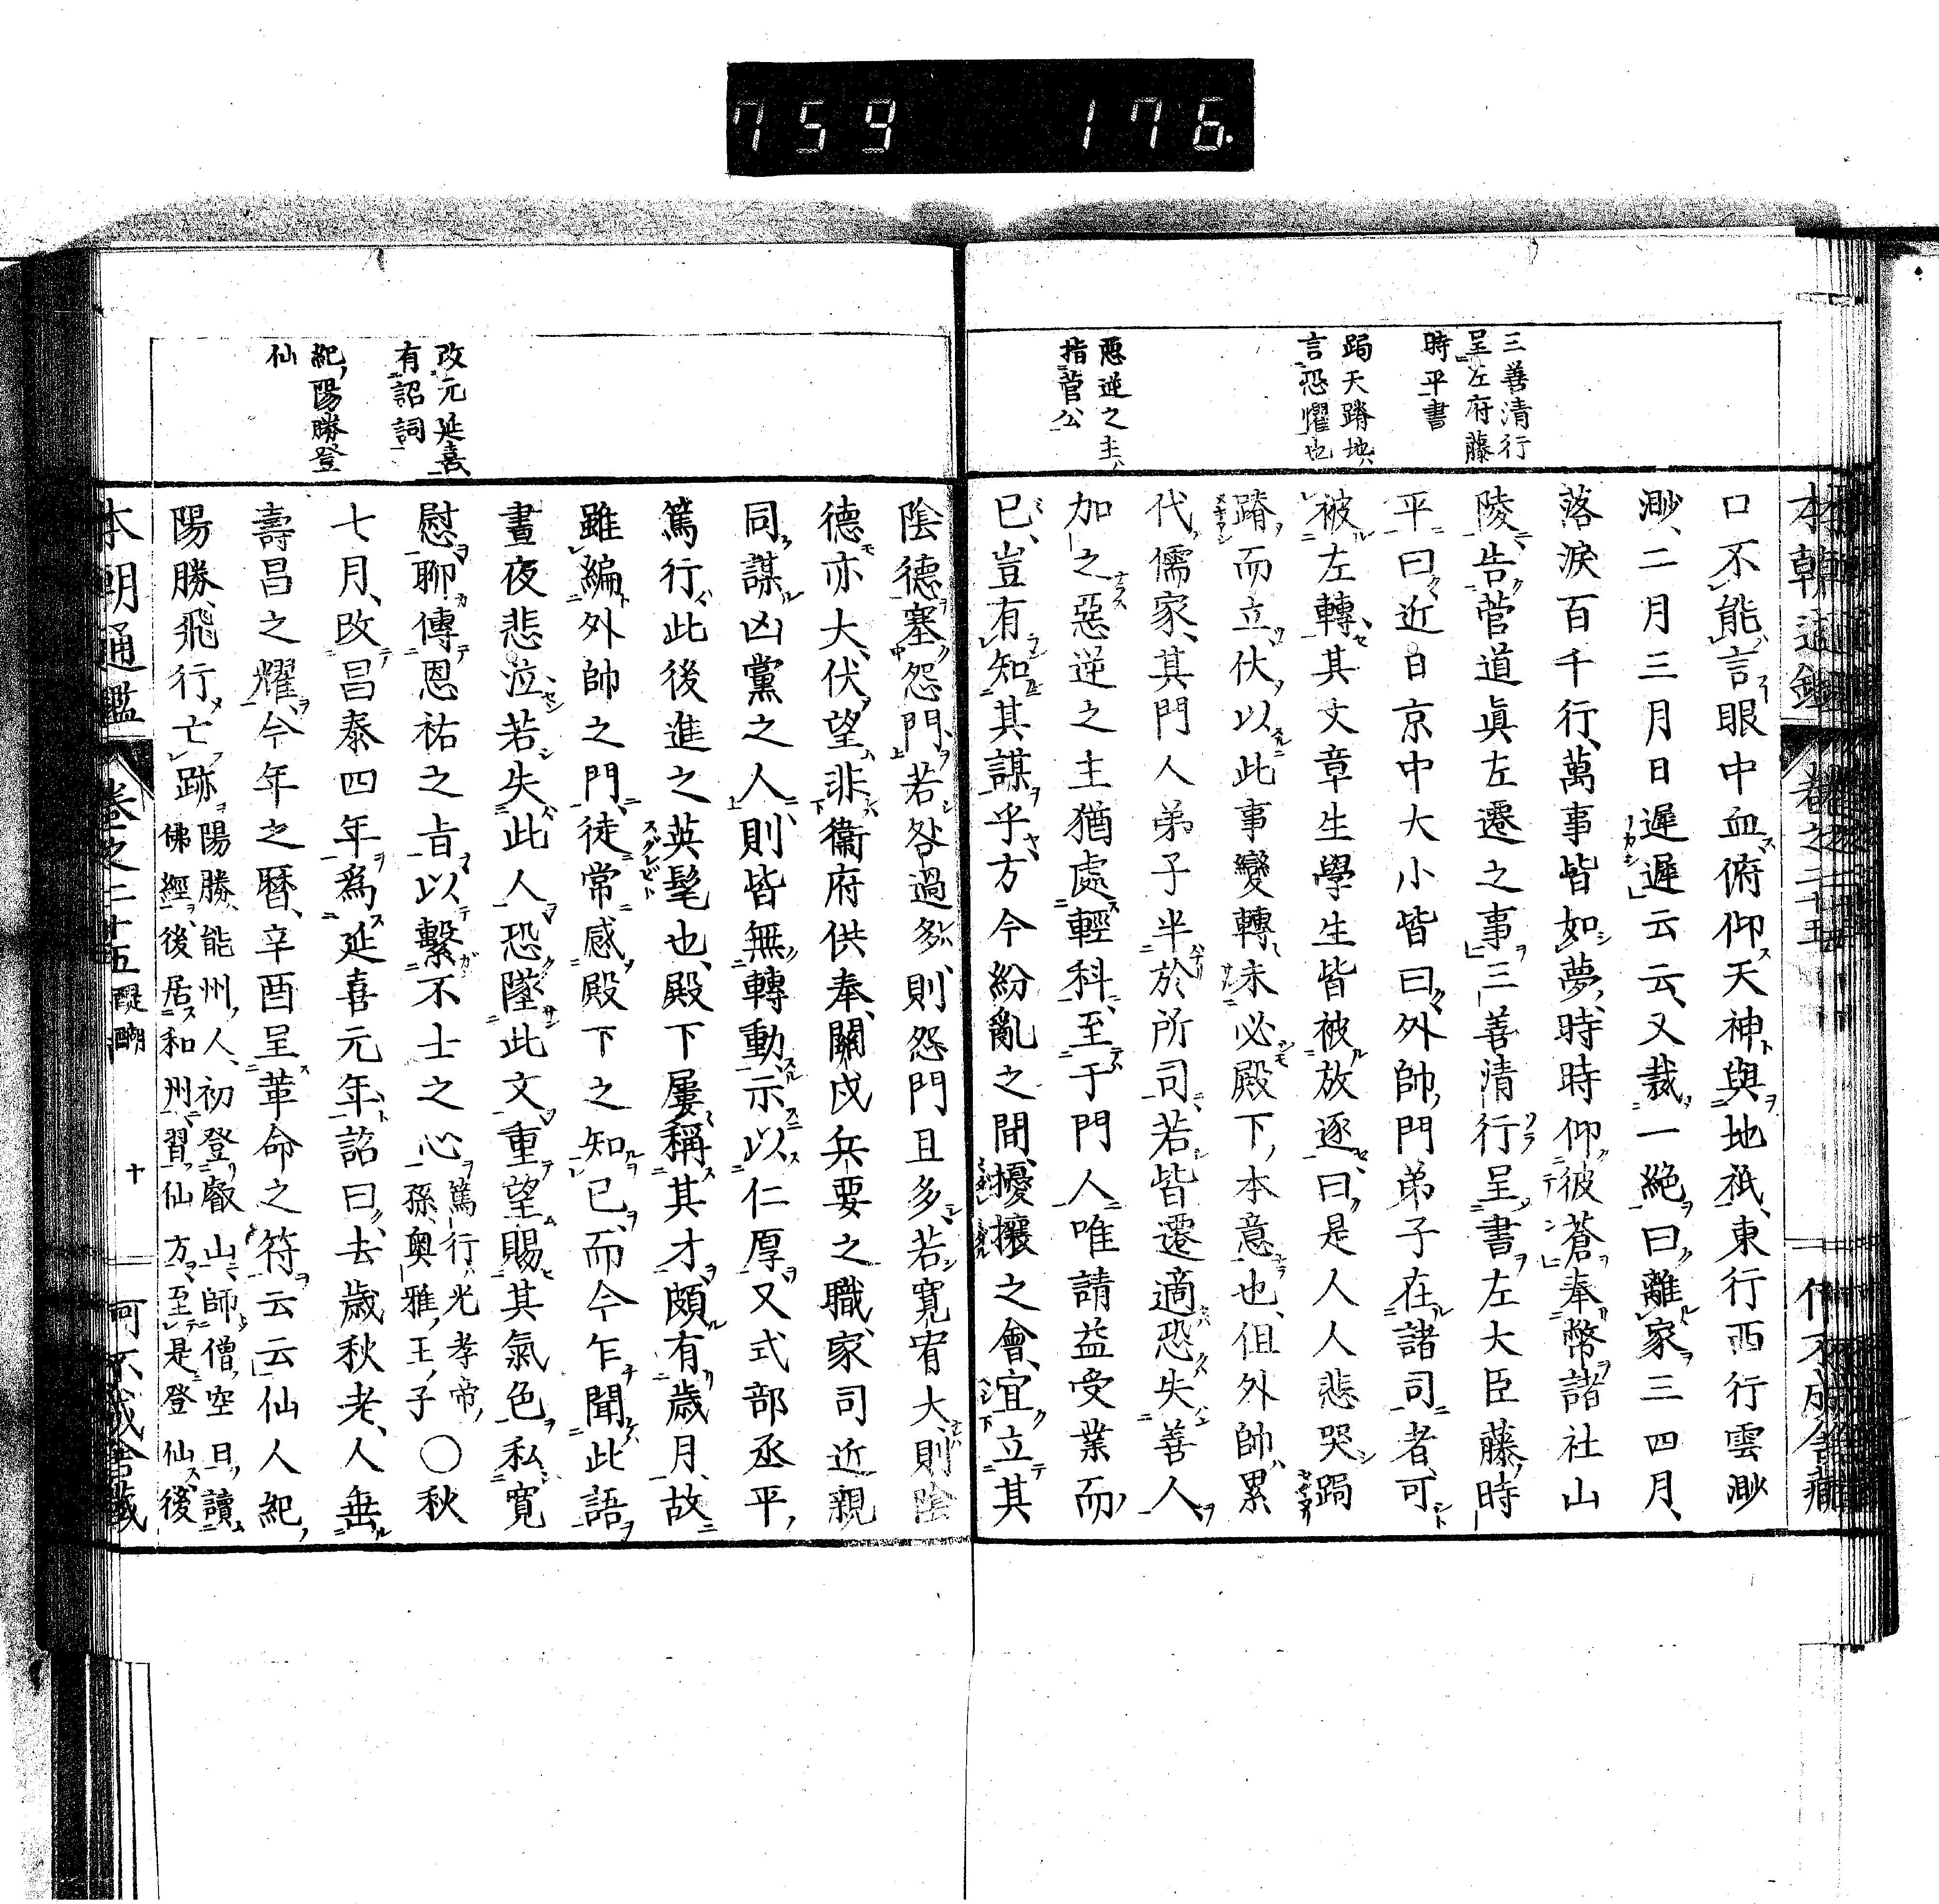 759 176
三善清行
呈左府藤
時平書
跼天蹐地
言恐懼也
惡逆之主
指菅公
口不能言眼中血俯仰天神與地祇東行西行雲渺
渺二月三月日遲遲云云又裁一絶曰離家三四月
落淚百千行萬事皆如夢時時仰彼蒼奉幣諸社山
陵告菅道眞左遷之事三善清行呈書左大臣藤時
平曰近日京中大小皆曰外帥門弟子在諸司者可
被左轉其文章生學生皆被放逐曰是人人悲哭跼
蹐而立伏以此事變轉未必殿下本意也但外帥累
代儒家其門人弟子半於所司若皆遷適恐失善人
加之惡逆之主猶處輕科至于門人唯請益受業而
已豈有知其謀乎方今紛亂之間擾攘之會宜立其
改元延喜
有詔詞
紀陽勝登
仙
陰德塞怨門若咎過多則怨門且多若寛宥大則陰
德亦大伏望非衞府供奉關戍兵要之職家司近親
同謀凶黨之人則皆無轉動示以仁厚又式部丞平
篤行此後進之英髦也殿下屢稱其才頗有歲月故
雖編外帥之門徒常感殿下之知已而今乍聞此語
晝夜悲泣若失此人恐墜此文重望賜其氣色私寛
慰聊傳恩祐之旨以繫不士之心篤行光孝帝孫奥雅王子〇秋
七月改昌泰四年爲延喜元年詔曰去歲秋老人垂
壽昌之耀今年之曆辛酉呈革命之符云云仙人紀
陽勝飛行亡跡陽勝能州人初登叡山師僧空日讀佛經後居和州習仙方至是登仙後
本朝通鑑 卷之二十五 醍醐 十